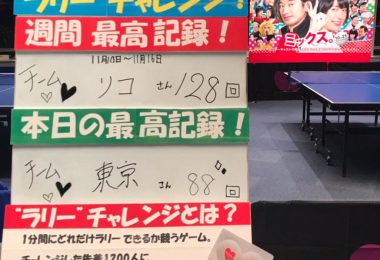 ラリーチャレンジ!
週間 最高記録!
11月10日〜11月16日
チーム リコ さん 128 回
本日の最高記録!
チーム 東京 さん 88 回
"ラリー"チャレンジとは?
1分間にどれだけラリーできるか競うゲーム。
チャレンジした先着1200人に
ミックス。